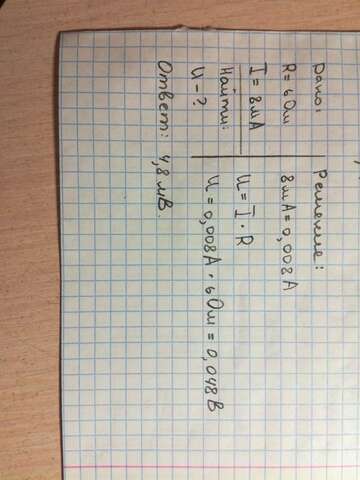 Дано:
R = 6 Ом
I = 8 мА
Найти:
U – ?
Решение:
8 мА = 0,008 А
U = I · R
U = 0,008 А · 6 Ом = 0,048 В
Ответ: 4,8 мВ.